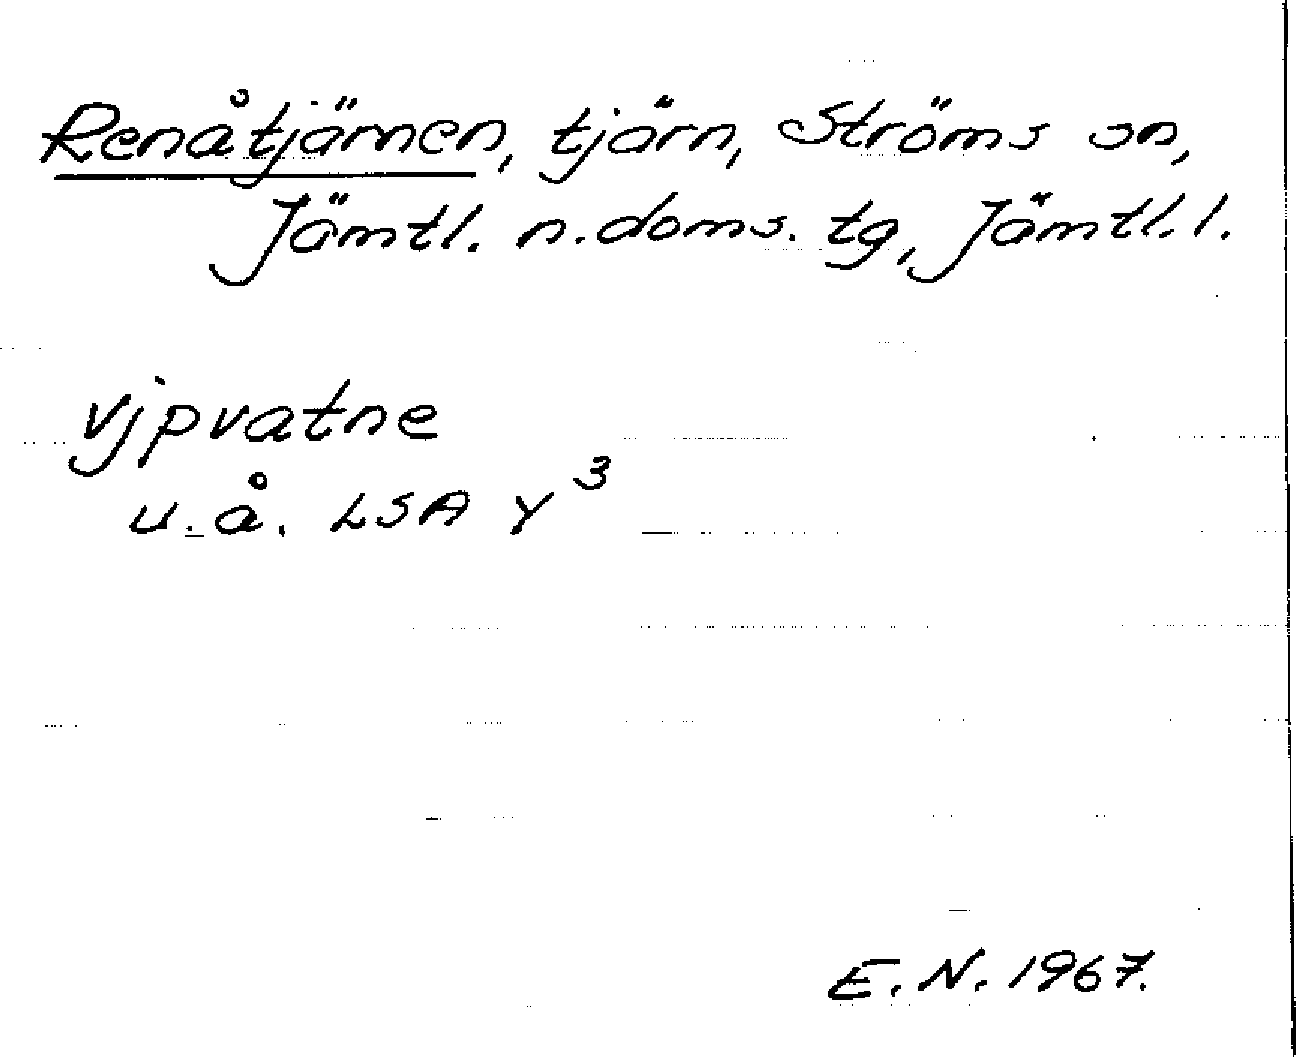 Renåtjärnen, tjärn, Ströms sn,
Jämtl. n. doms. tg, Jämtl. l.
vjpvatne
u. å. LSA Y³
E. N. 1967.